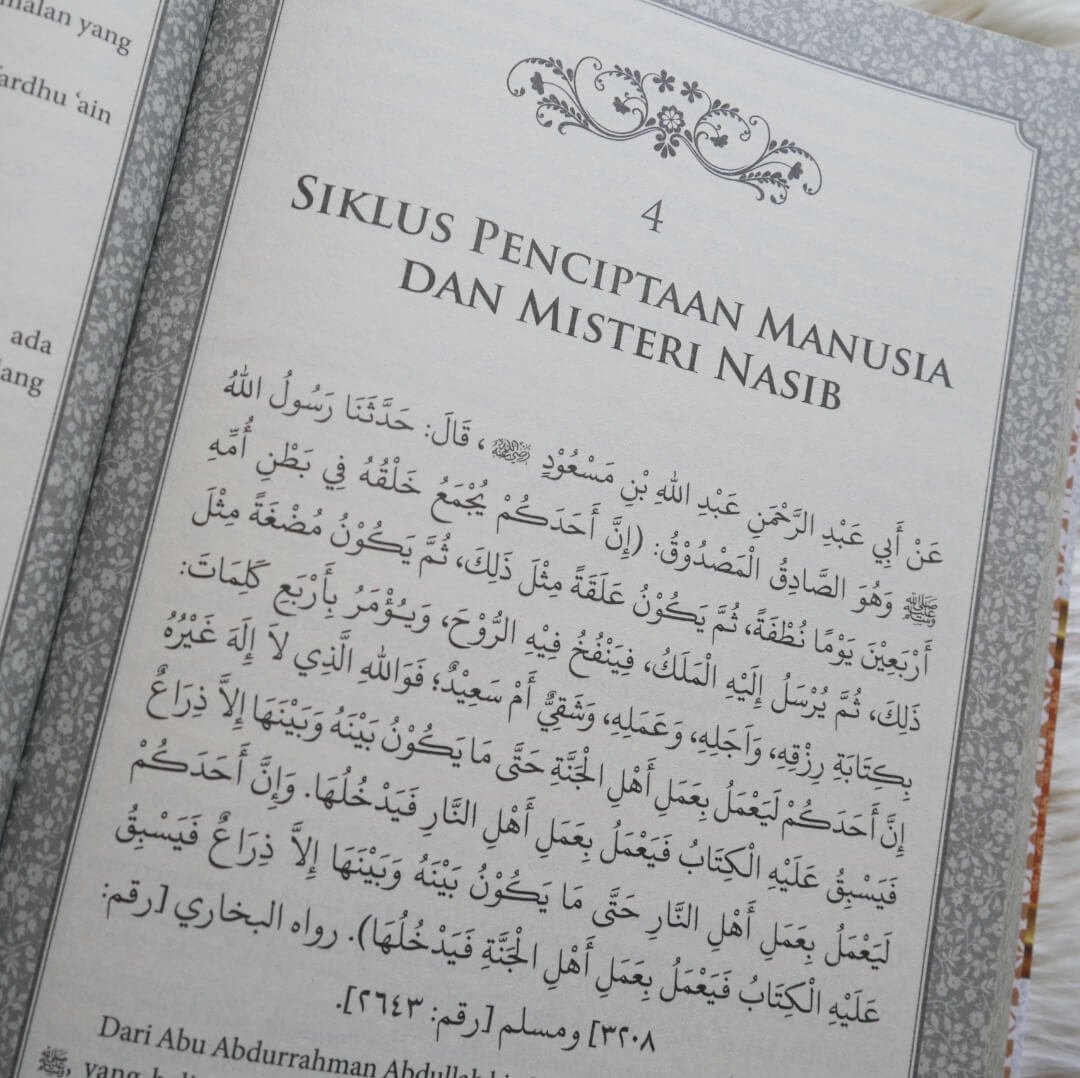 malan yang
fardhu ‘ain
ada
lang
4
SIKLUS PENCIPTAAN MANUSIA
DAN MISTERI NASIB
عَنْ أَبِي عَبْدِ الرَّحْمَنِ عَبْدِ اللهِ بْنِ مَسْعُوْدٍ ﵁، قَالَ: حَدَّثَنَا رَسُولُ اللهُ
ﷺ وَهُوَ الصَّادِقُ الْمَصْدُوْقُ: (إِنَّ أَحَدَكُمْ يُجْمَعُ خَلْقُهُ فِي بَطْنِ أُمِّهِ
أَرْبَعِيْنَ يَوْمًا نُطْفَةً، ثُمَّ يَكُوْنُ عَلَقَةً مِثْلَ ذَلِكَ، ثُمَّ يَكُوْنُ مُضْغَةً مِثْلَ
ذَلِكَ، ثُمَّ يُرْسَلُ إِلَيْهِ الْمَلَكُ، فِيَنْفُخُ فِيْهِ الرُّوْحَ، وَيُؤْمَرُ بِأَرْبَعِ كَلِمَاتَ:
بِكِتَابَةِ رِزْقِهِ، وَاَجَلِهِ، وَعَمَلِهِ، وَشَقِيٌّ أَمْ سَعِيْدٌ؛ فَوَاللهِ الَّذِي لاَ إِلَهَ غَيْرُهُ
إِنَّ أَحَدَكُمْ لَيَعْمَلُ بِعَمَلِ أَهْلِ الْجَنَّةِ حَتَّى مَا يَكُوْنُ بَيْنَهُ وَبَيْنَهَا إِلاَّ ذِرَاعٌ
فَيَسْبِقُ عَلَيْهِ الْكِتَابُ فَيَعْمَلُ بِعَمَلِ أَهْلِ النَّارِ فَيَدْخُلُهَا. وَإِنَّ أَحَدَكُمْ
لَيَعْمَلُ بِعَمَلِ أَهْلِ النَّارِ حَتَّى مَا يَكُوْنُ بَيْنَهُ وَبَيْنَهَا إِلاَّ ذِرَاعٌ فَيَسْبِقُ
عَلَيْهِ الْكِتَابُ فَيَعْمَلُ بِعَمَلِ أَهْلِ الْجَنَّةِ فَيَدْخُلُهَا). رواه البخاري [رقم:
٣٢٠٨] ومسلم [رقم: ٢٦٤٣].
Dari Abu Abdurrahman Abdullah
ﷺ, yang